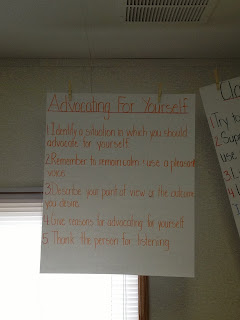 Advocating For Yourself
1. Identify a situation in which you should
advocate for yourself.
2. Remember to remain calm & use a pleasant
voice.
3. Describe your point of view & the outcome
you desire.
4. Give reasons for advocating for yourself.
5. Thank the person for listening.
1. Try to
2.
use
3.
4.